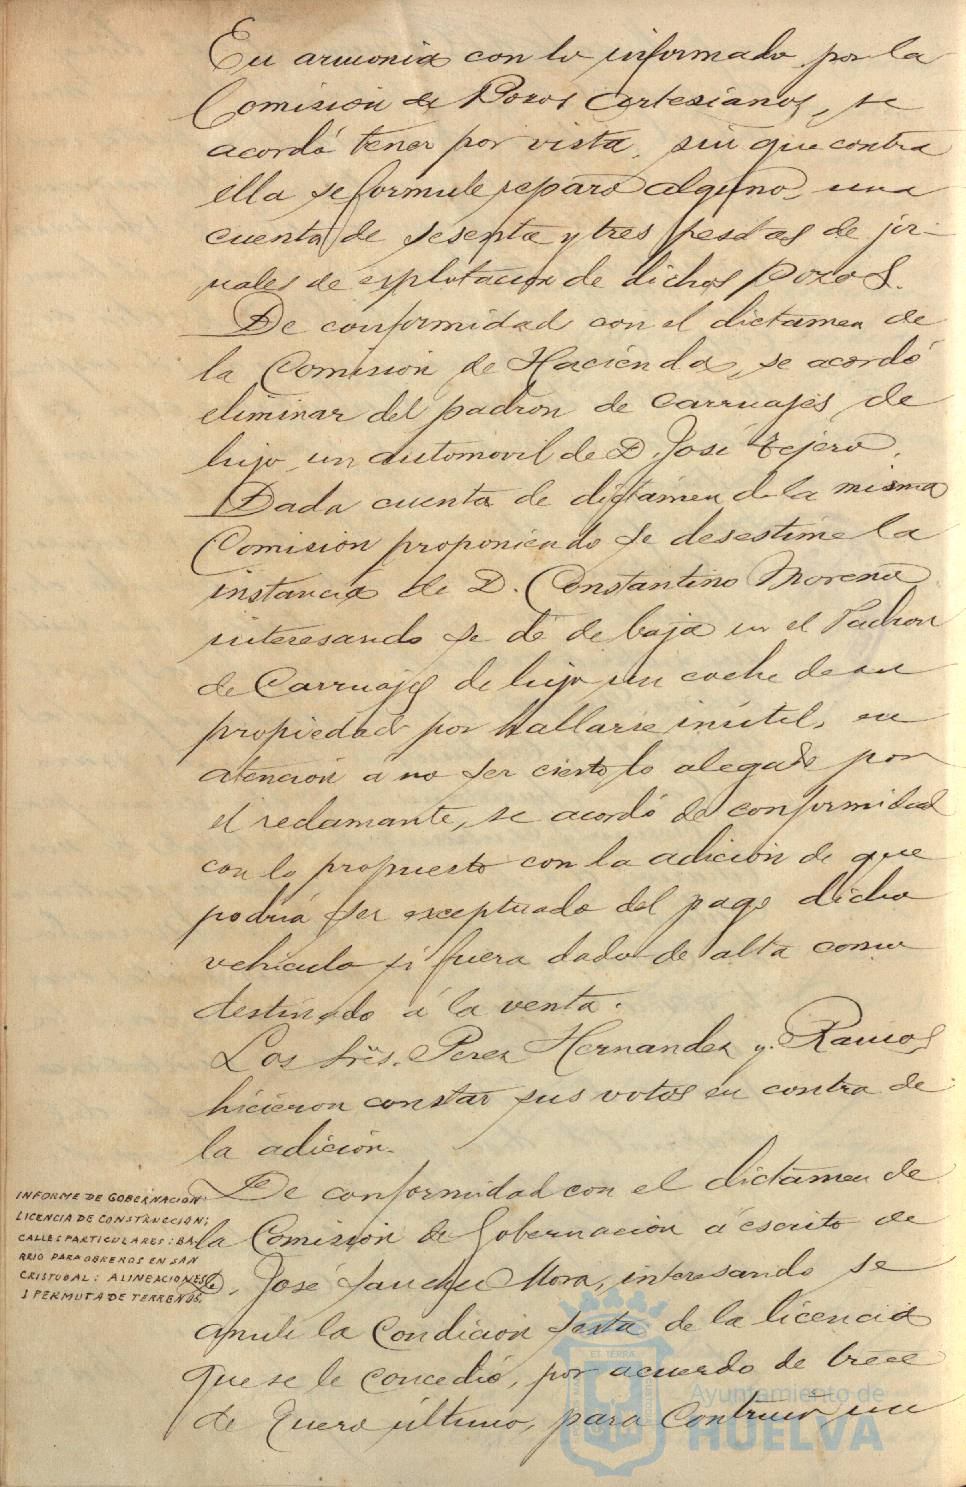 En armonia con lo informado por la
Comision de Pozos Artesianos, se
acordó tener por vista, sin que contra
ella se formule reparo alguno, una
cuenta de sesenta y tres pesetas de jor-
nales de explotacion de dichos Pozos.
De conformidad con el dictamen de
la Comision de Hacienda, se acordó
eliminar del padron de carruajes de
lujo un automovil de D. José Tejero.
Dada cuenta de dictamen de la misma
Comision proponiendo se desestime la
instancia de D. Constantino Moreno
interesando se dé de baja en el Padron
de Carruajes de lujo un coche de su
propiedad por hallarse inútil, en
atencion á no ser cierto lo alegado por
el reclamante, se acordó de conformidad
con lo propuesto con la adicion de que
podriá ser exceptuado del pago dicho
vehiculo si fuera dado de alta como
destinado á la venta.
Los Srẽs. Perez Hernandez y Ramos
hicieron constar sus votos en contra de
la adicion.
De conformidad con el dictamen de
la Comision de Gobernacion á escrito de
D. José Sanchez Mora, interesando se
anule la condicion sexta de la licencia
que se le concedió, por acuerdo de trece
de Enero último, para construir un
INFORME DE GOBERNACION
LICENCIA DE CONSTRUCCION;
CALLES PARTICULARES: BA-
RRIO PARA OBREROS EN SAN
CRISTOBAL: ALINEACIONES
I PERMUTA DE TERRENOS.
Ayuntamiento de
HUELVA